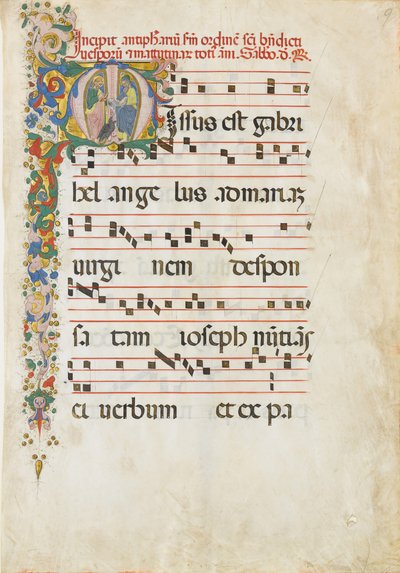 Incipit antiphanariū scďm ordinē sci bn̄dicti
uesporū & matutinar toti āni. Sabbo. d. R.
Missus est gabri
hel ange lus ad mariaȝ
uirgi nem despon
sa tam ioseph nūtiās
ei uerbum et ex pa